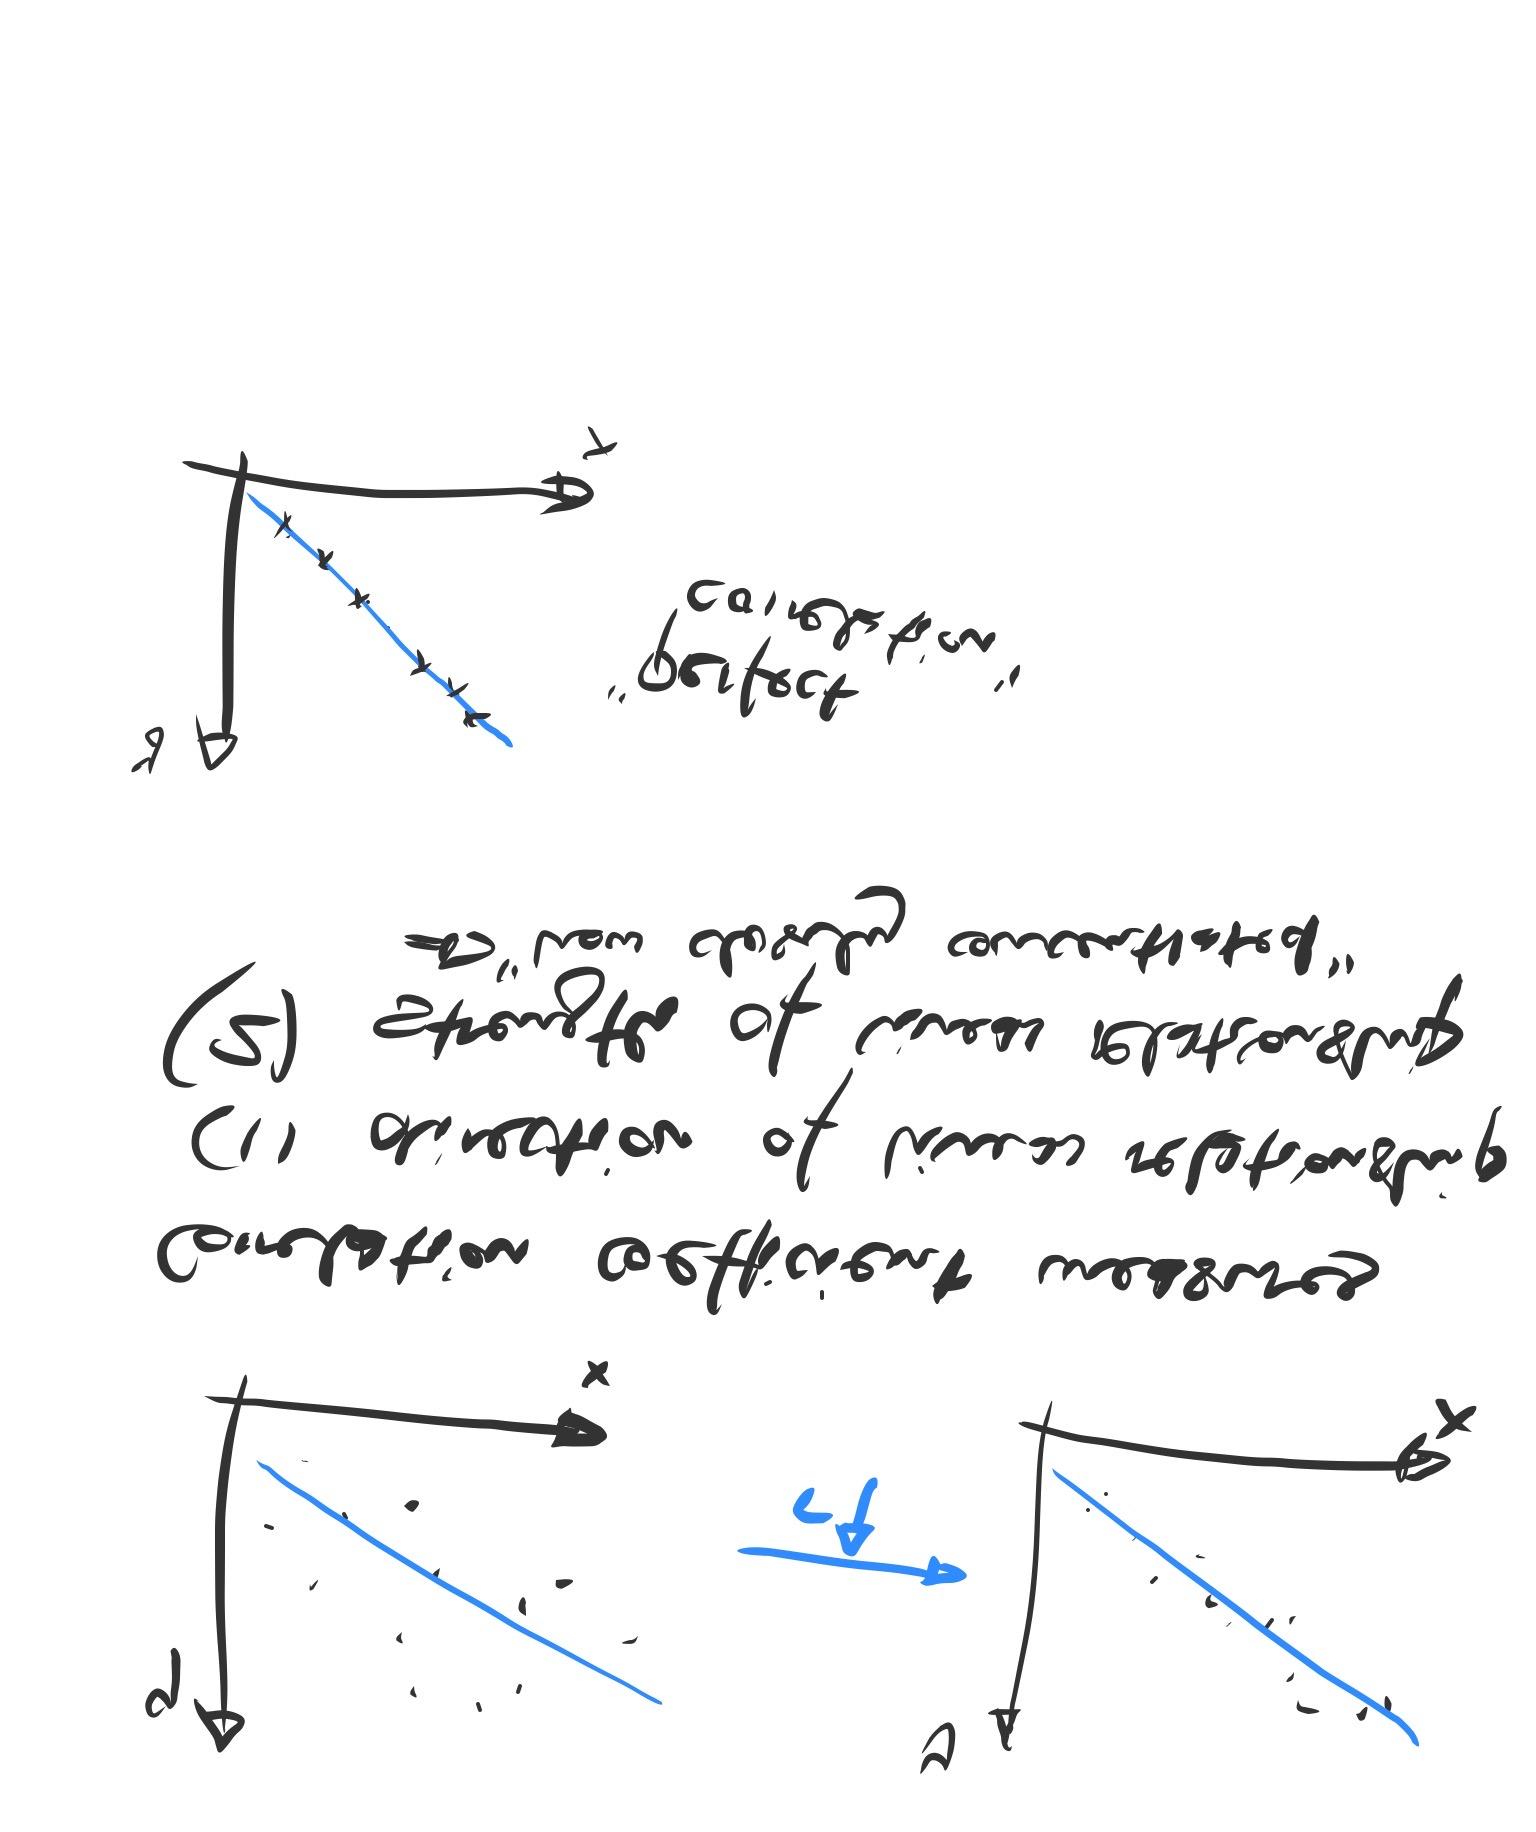 y
y
r↑
x
x
Correlation coefficient measures
(1) direction of linear relationship
(2) strength of linear relationship
⇒ "how closely concentrated"
y
"perfect
correlation"
x